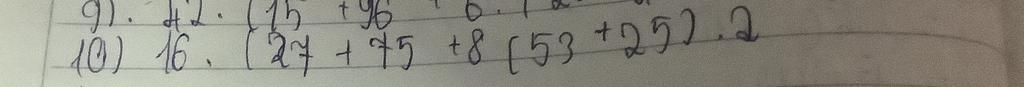 9). 42. (15 +96 + 6. (
10) 16. (27 + 75 +8 (53 +25). 2